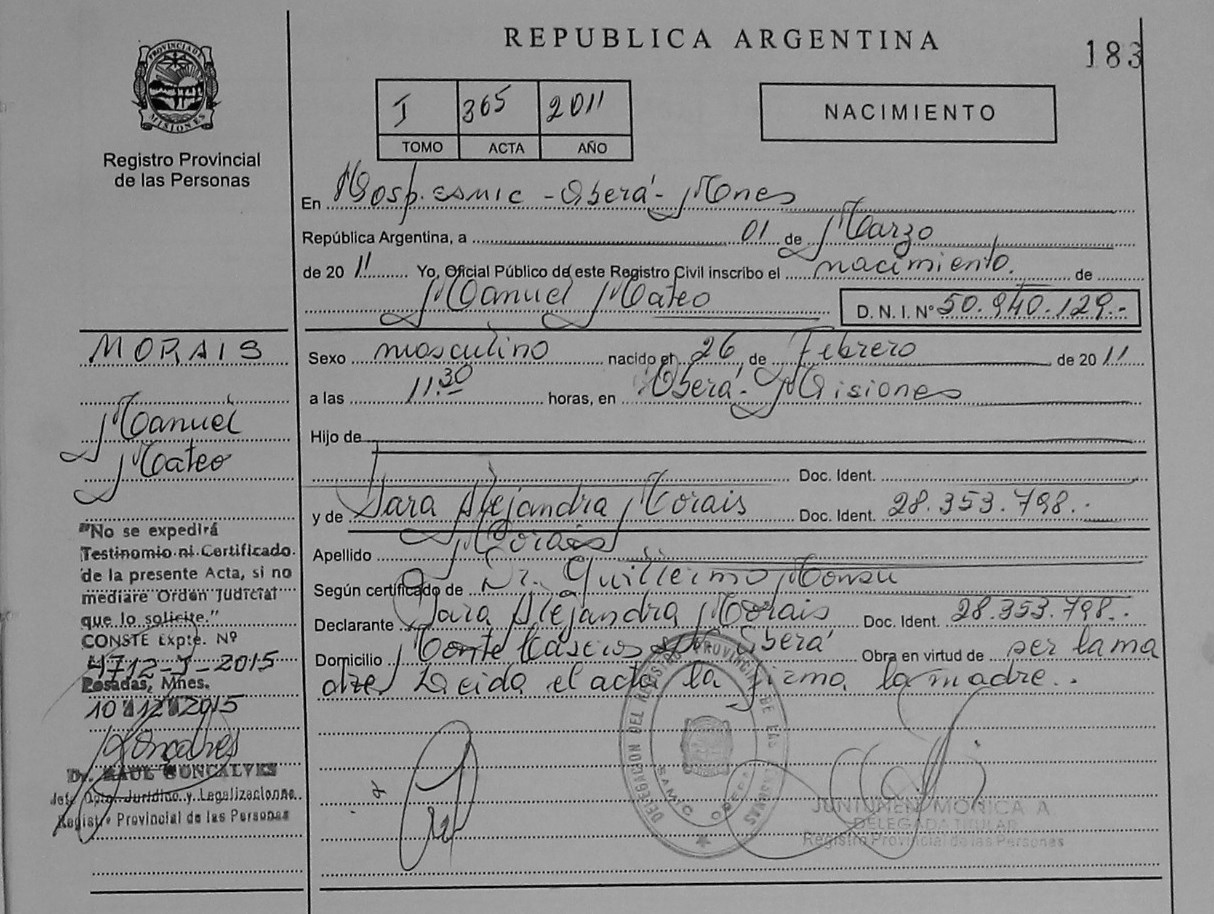 REPUBLICA ARGENTINA
183
PROVINCIA DE MISIONES
Registro Provincial
de las Personas
I 365 2011
TOMO ACTA AÑO
NACIMIENTO
En Hosp. SAMIC - Oberá - Mnes
República Argentina, a 01 de Marzo
de 2011 Yo, Oficial Público de este Registro Civil inscribo el nacimiento. de
Manuel Mateo D. N. I. Nº 50.940.129.-
Sexo masculino nacido el 26 de Febrero de 2011
a las 11.30 horas, en Oberá - Misiones
Hijo de
Doc. Ident.
y de Sara Alejandra Morais Doc. Ident. 28.353.798.-
Apellido Morais
Según certificado de Dr. Guillermo
Declarante Sara Alejandra Morais Doc. Ident. 28.353.798.-
Domicilio Monte Oberá Obra en virtud de ser la ma
dre. Leida el acta la firma la madre.
MORAIS
Manuel
Mateo
"No se expedirá
Testimonio ni Certificado
de la presente Acta, si no
mediare Orden Judicial
que lo solicite."
CONSTE Expte. Nº
4712-J-2015
Posadas, Mnes.
10 12 2015
Dr. RAUL GONCALVES
Jefe Dpto. Jurídico y Legalizaciones
Registro Provincial de las Personas
DELEGACION DEL REGISTRO PROVINCIAL DE LAS PERSONAS
SAMIC OBERA
JUNTUNEN MONICA A.
DELEGADA TITULAR
Registro Provincial de las Personas